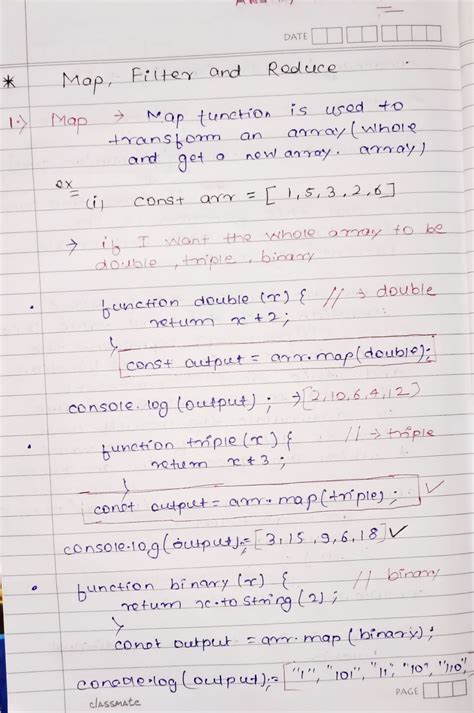 DATE
* Map, Filter and Reduce
1.) Map → Map function is used to
transform an array (whole
and get a new array. array)
ex
(i) const arr = [1,5,3,2,6]
→ if I want the whole array to be
double, triple, binary
• function double (x) { // → double
return x+2;
}
const output = arr.map(double);
console.log (output) ; →[2,10,6,4,12)
• function triple (x) { // → triple
return x+3 ;
}
const output = arr.map(triple) ; ✓
console.log (output);= [3,15,9,6,18] ✓
• function binary (x) { // binary
return x.toString(2);
}
const output = arr.map (binary);
console.log (output);= ["1", "101", "11", "10", "110",
classmate
PAGE